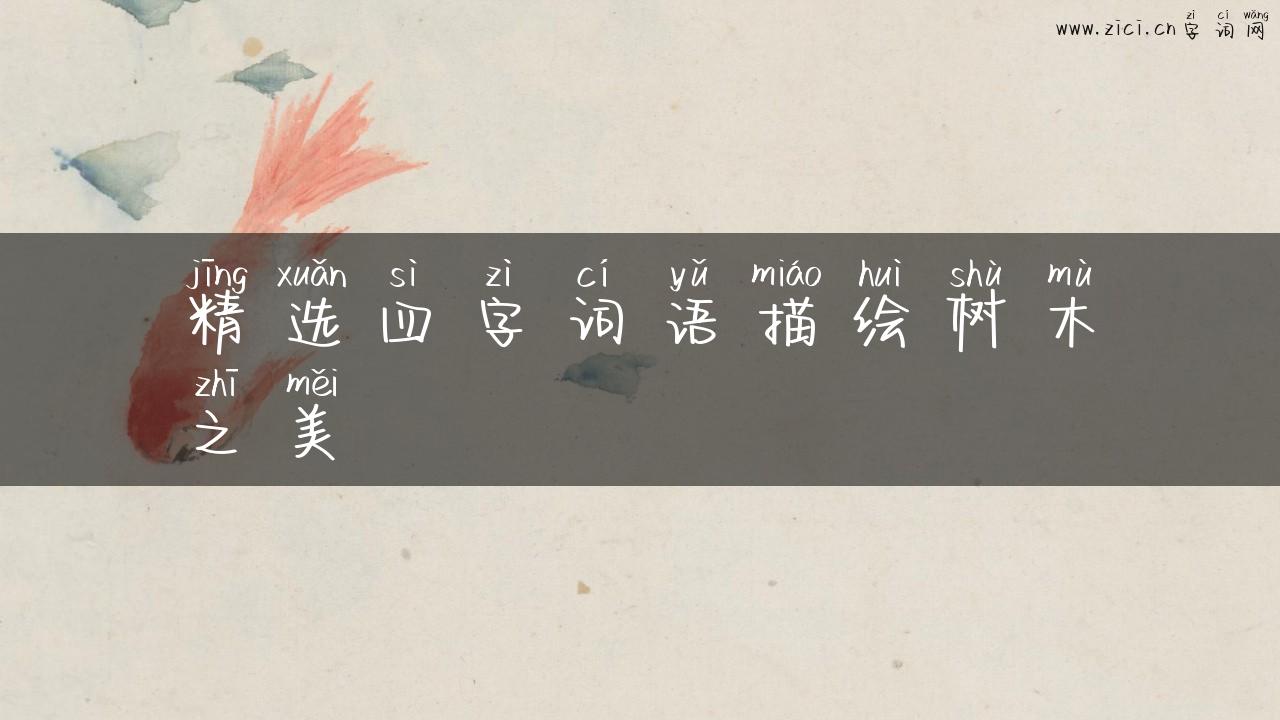 zì cí wǎng
www.zici.cn字词网
jīng xuǎn sì zì cí yǔ miáo huì shù mù
精选四字词语描绘树木
zhī měi
之美